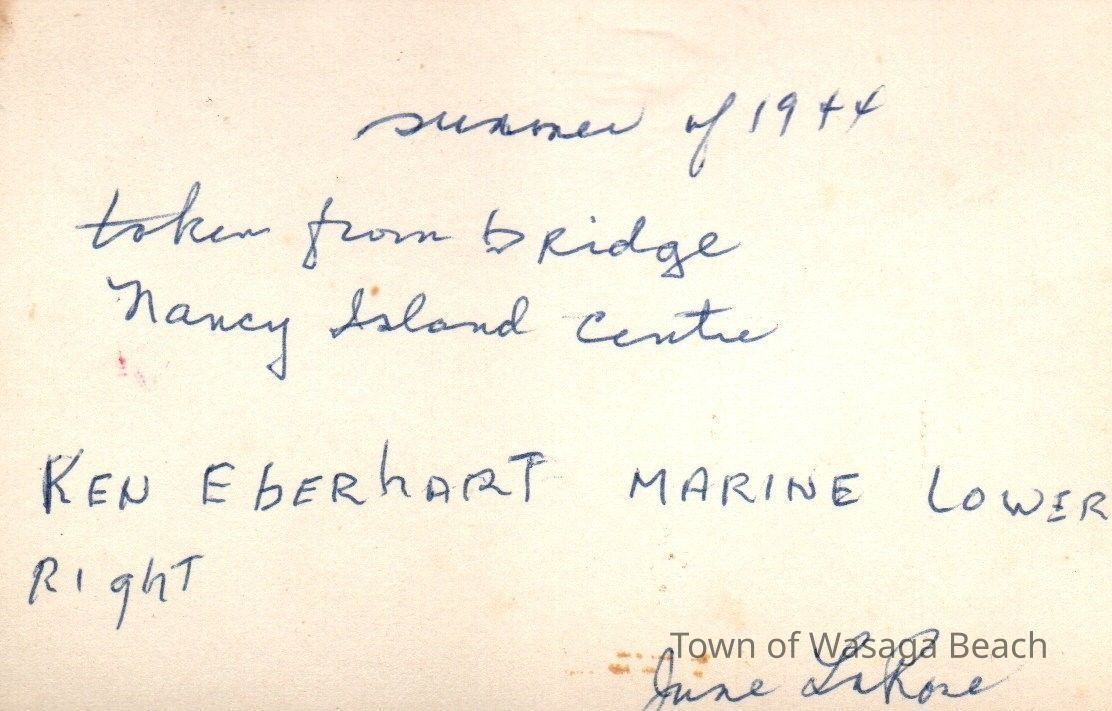 summer of 1944
taken from bridge
Nancy Island Centre
KEN EbERhART MARINE LOWER
RIghT
Town of Wasaga Beach
June LaRose